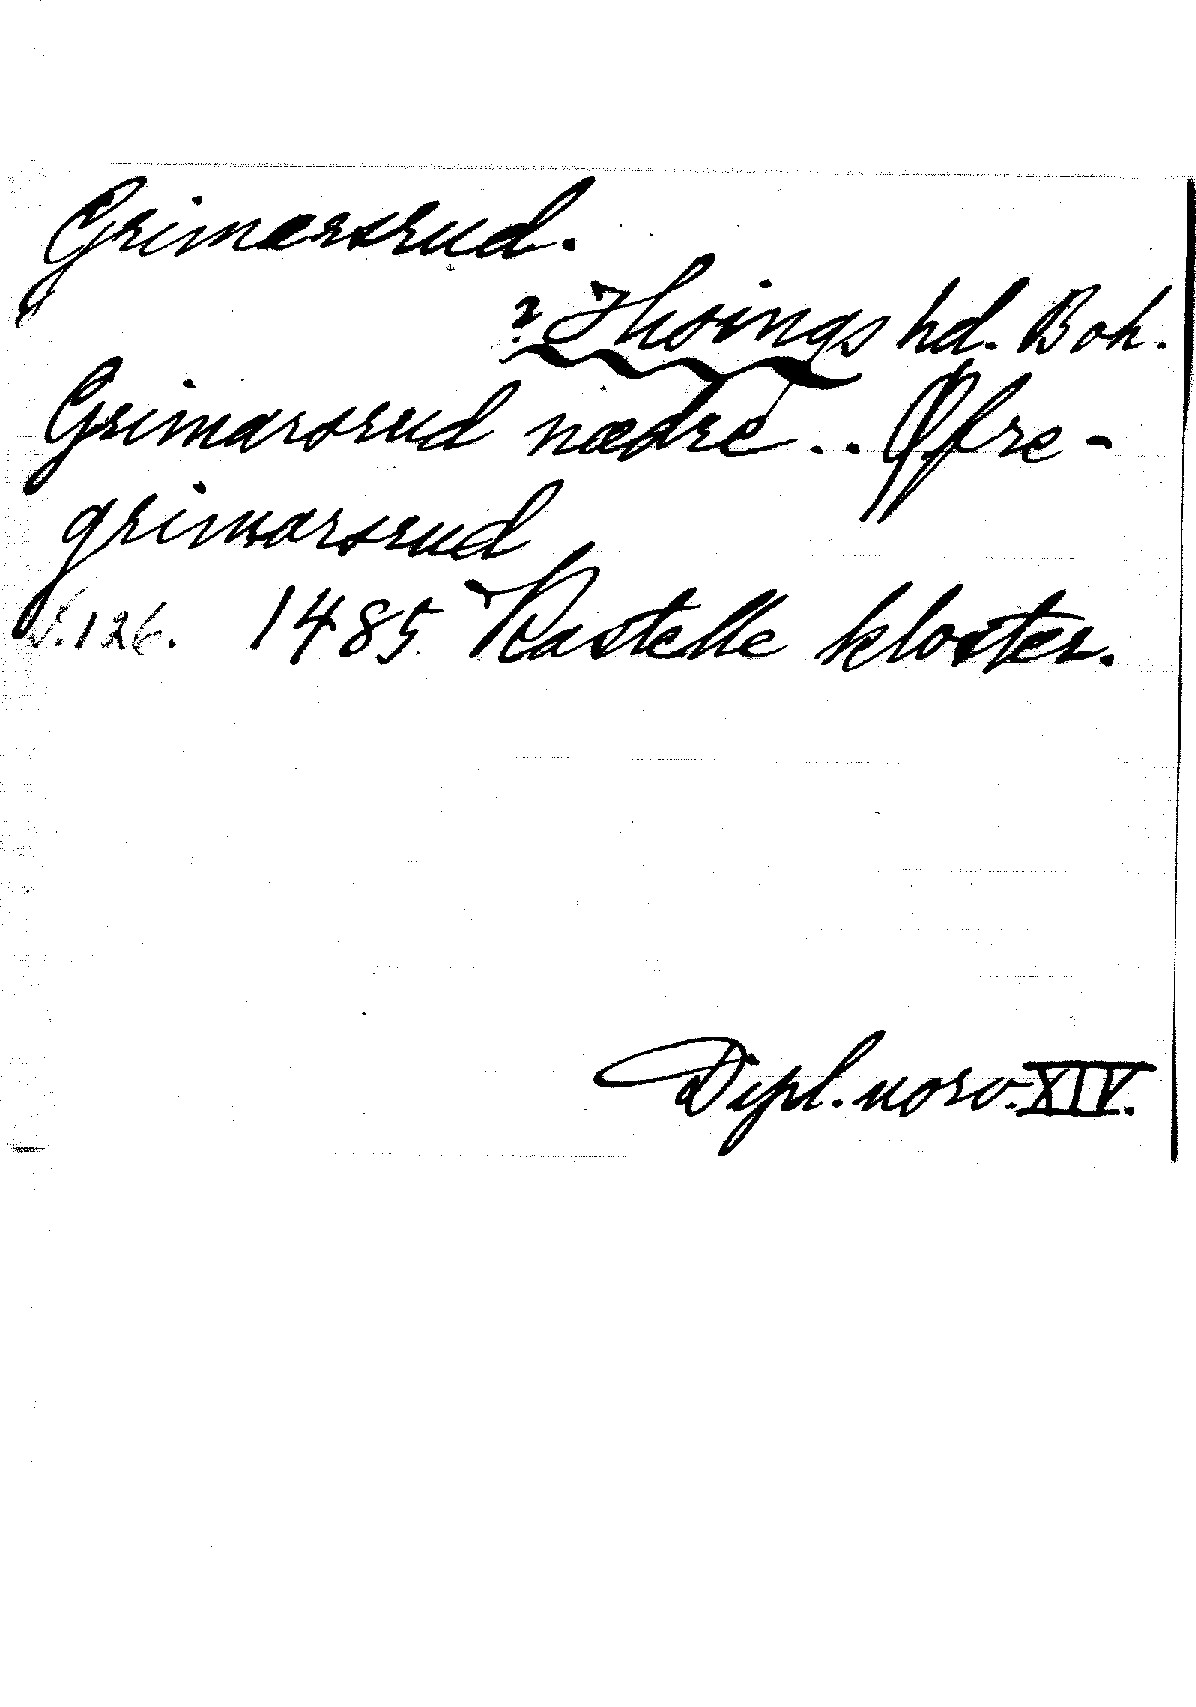 Grimarsrud.
? Hisings hd. Boh.
Grimarsrud nædre .. Øfre-
grimarsrud
S. 126. 1485 Kastelle kloster.
Dipl. norv. XIV.